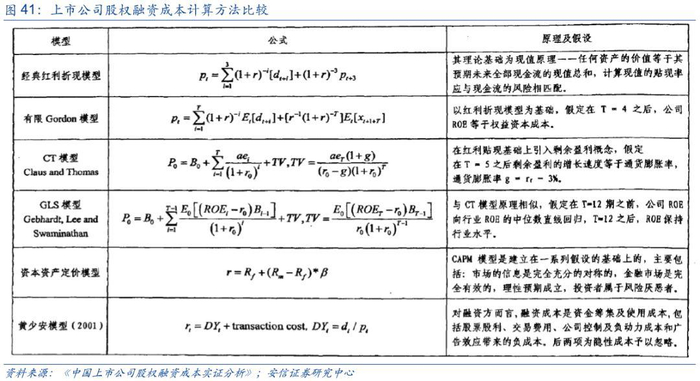 图 41：上市公司股权融资成本计算方法比较
模型
公式
原理及假设
经典红利折现模型
p_t = \sum_{i=1}^{3}(1+r)^{-i}[d_{t+i}]+(1+r)^{-3}p_{t+3}
其理论基础为现值原理——任何资产的价值等于其
预期未来全部现金流的现值总和，计算现值的贴现率
应与现金流的风险相匹配。
有限 Gordon 模型
p_t = \sum_{i=1}^{T}(1+r)^{-i}E_t[d_{t+i}]+[r^{-1}(1+r)^{-T}]E_t[x_{t+1+T}]
以红利折现模型为基础，假定在 T = 4 之后，公司
ROE 等于权益资本成本。
CT 模型
Claus and Thomas
P_0 = B_0+\sum_{i=1}^{T}\frac{ae_i}{(1+r_0)^i}+TV, TV=\frac{ae_T(1+g)}{(r_0-g)(1+r_0)^T}
在红利贴现基础上引入剩余盈利概念，假定
在 T = 5 之后剩余盈利的增长速度等于通货膨胀率，
通货膨胀率 g = r_f - 3%。
GLS 模型
Gebhardt, Lee and
Swaminathan
P_0 = B_0+\sum_{i=1}^{T-1}\frac{E_0[(ROE_i-r_0)B_{i-1}]}{(1+r_0)^i}+TV, TV=\frac{E_0[(ROE_T-r_0)B_{T-1}]}{r_0(1+r_0)^{T-1}}
与 CT 模型原理相似，假定在 T=12 期之前，公司 ROE
向行业 ROE 的中位数直线回归，T=12 之后，ROE 保持
行业水平。
资本资产定价模型
r = R_f+(R_m-R_f)*β
CAPM 模型是建立在一系列假设的基础上的，主要包
括：市场的信息是完全充分的对称的，金融市场是完
全有效的，理性预期成立，投资者属于风险厌恶者。
黄少安模型（2001）
r_t = DY_t+transaction cost, DY_t = d_t / p_t
对融资方而言，融资成本是资金筹集及使用成本，包
括股票股利、交易费用、公司控制及负动力成本和广
告效应带来的负成本。后两项为隐性成本予以忽略。
资料来源：《中国上市公司股权融资成本实证分析》；安信证券研究中心